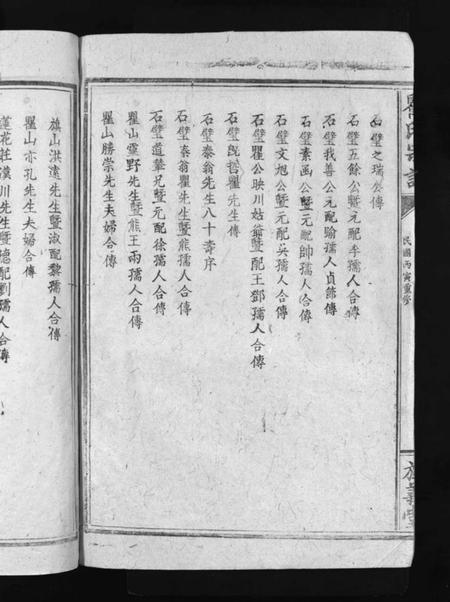 瞿氏宗譜
民國丙寅重修
石璧之瑞公傳
石璧五餘公暨元配李孺人合傳
石璧我善公元配喻孺人貞節傳
石璧素函公暨元配帥孺人合傳
石璧文旭公暨元配吳孺人合傳
石璧瞿公映川姑翁暨配王鄧孺人合傳
石璧既哲瞿先生傳
石璧泰翁先生八十壽序
石璧泰翁瞿先生暨熊孺人合傳
石璧道輦兄暨元配徐孺人合傳
瞿山雲野先生暨熊王兩孺人合傳
瞿山勝崇先生夫婦合傳
旗山洪遠先生暨淑配黎孺人合傳
瞿山亦孔先生夫婦合傳
蓮花莊漢川先生暨德配劉孺人合傳